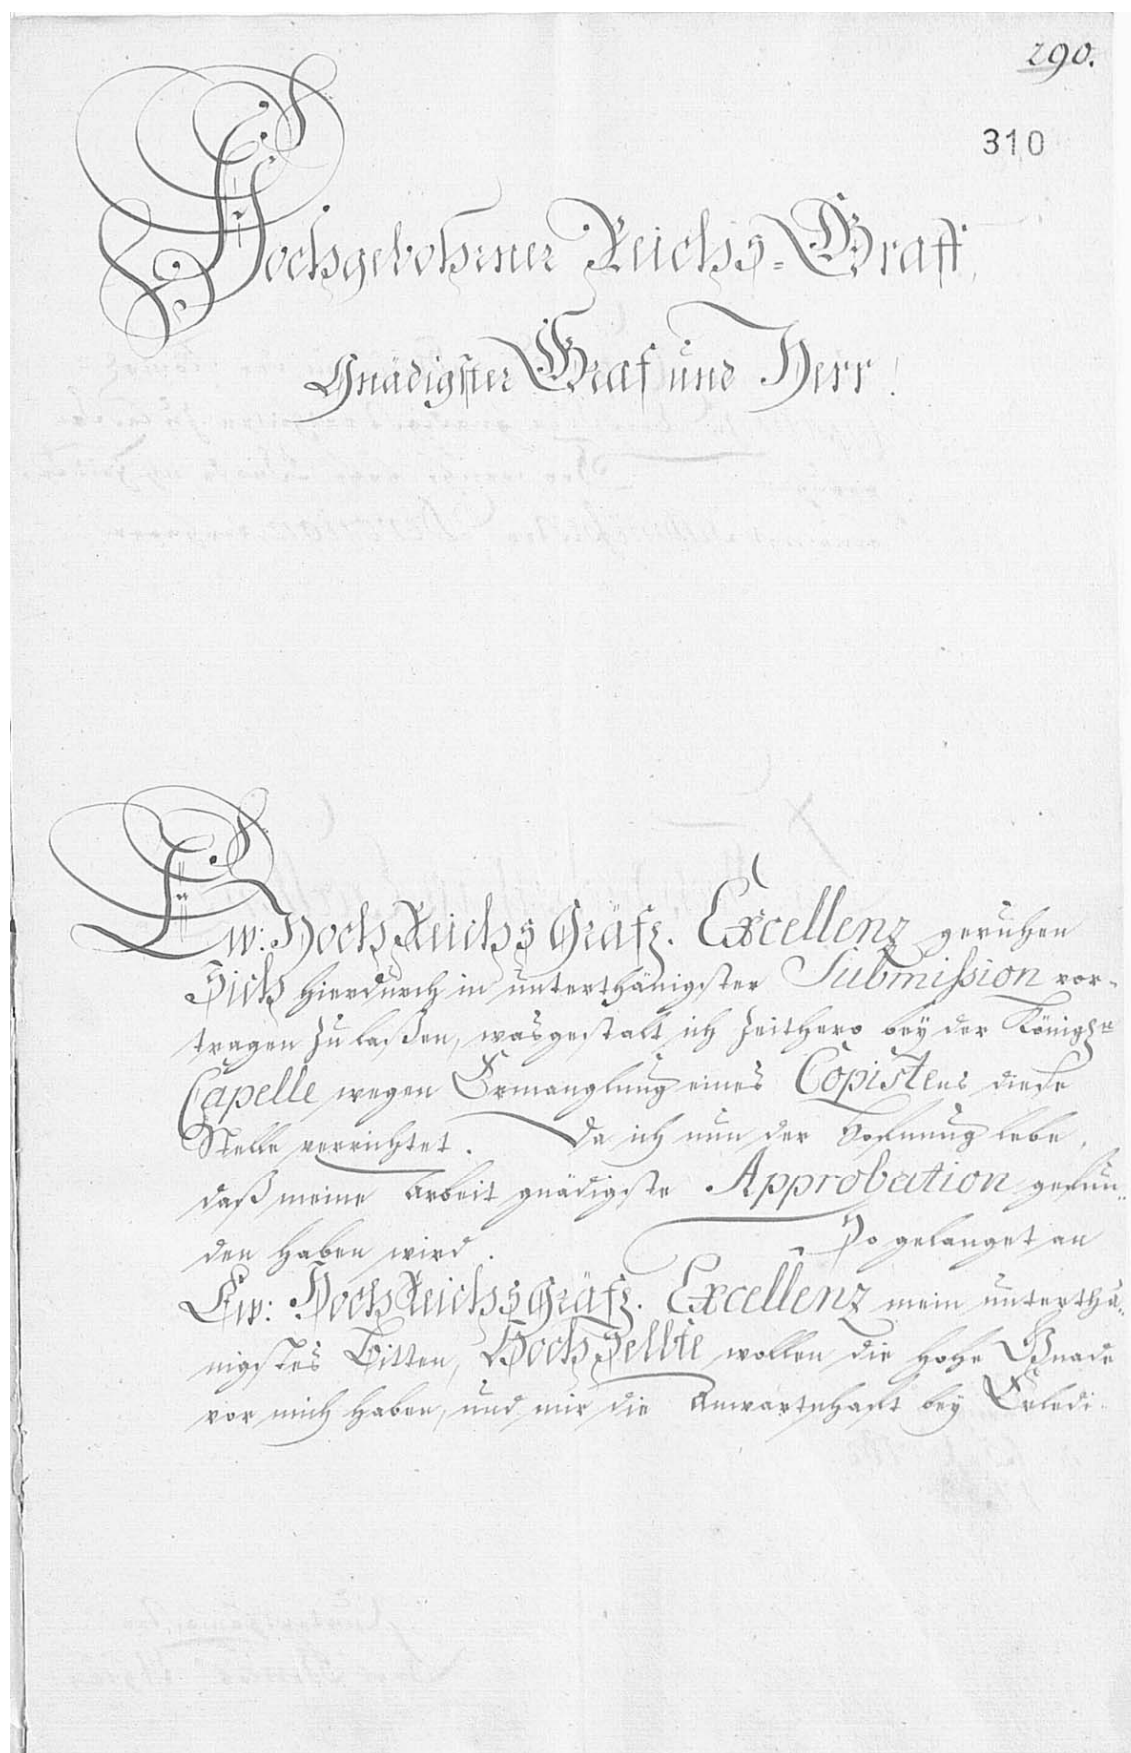 290.
310
Hochgebohrner Reichs=Graff,
Gnädigster Graf und Herr!
Ew: HochReichsGräfl. Excellenz geruhen
Sich hierdurch in unterthänigster Submission vor-
tragen zu laßen, wasgestalt ich zeithero bey der Königln
Capelle wegen Ermanglung eines Copistens diese
Stelle verrichtet. Da ich nun der Hofnung lebe,
daß meine Arbeit gnädigste Approbation gefun-
den haben wird. So gelanget an
Ew: HochReichsGräfl. Excellenz mein unterthä-
nigstes Bitten, HochSelbte wollen die hohe Gnade
vor mich haben, und mir die Anwartschaft bey Erledi-